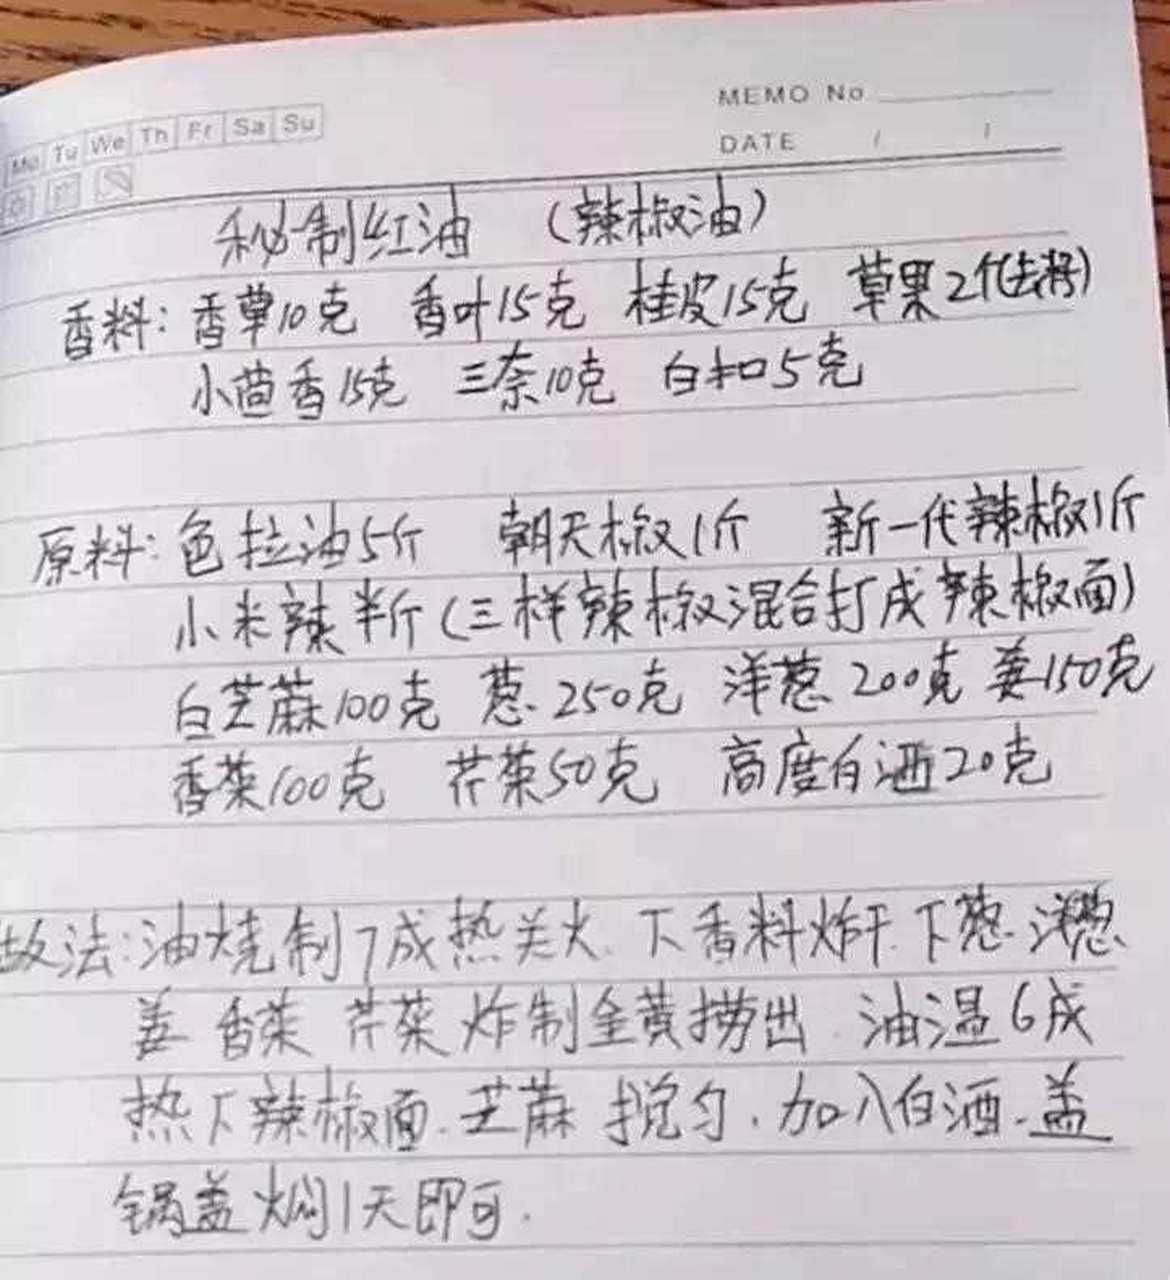 MEMO No
Mo Tu We Th Fr Sa Su
DATE / /
秘制红油 (辣椒油)
香料: 香草10克 香叶15克 桂皮15克 草果2个(去籽)
小茴香15克 三奈10克 白扣5克
原料: 色拉油5斤 朝天椒1斤 新一代辣椒1斤
小米辣半斤(三样辣椒混合打成辣椒面)
白芝麻100克 葱.250克 洋葱200克 姜150克
香菜100克 芹菜50克 高度白酒20克
做法:油烧制7成热关火.下香料炸干.下葱.洋葱.
姜 香菜 芹菜 炸制金黄捞出.油温6成
热下辣椒面.芝麻 搅匀.加入白酒.盖
锅盖焖1天即可.